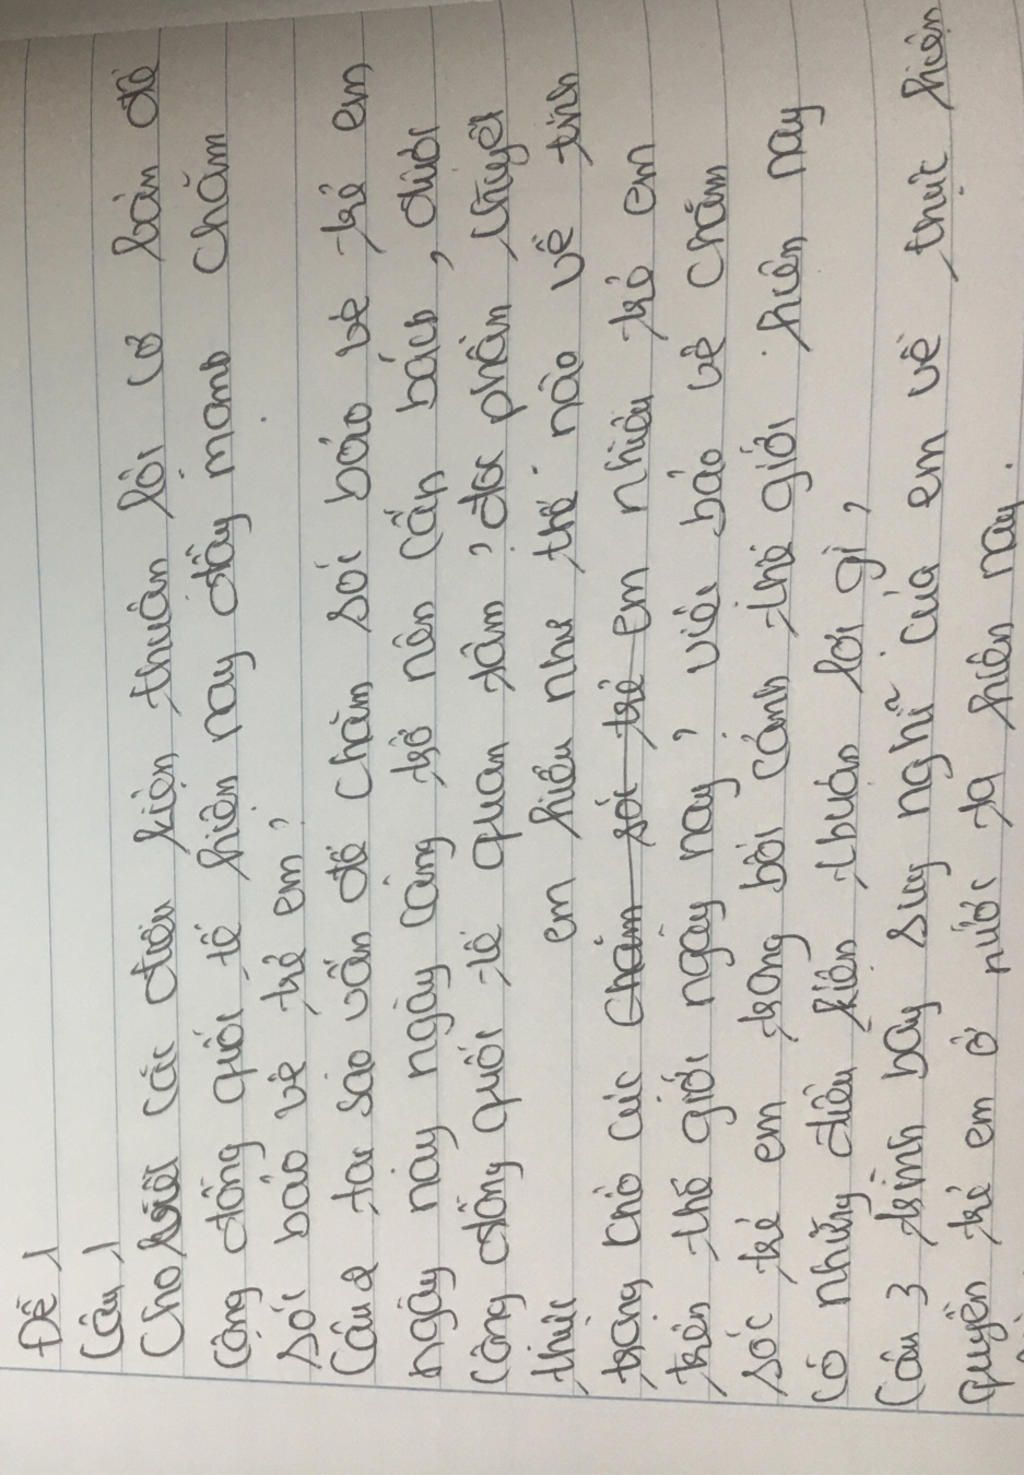 Đề 1
Câu 1
Cho biết các điều kiện thuận lợi cơ bản để
cộng đồng quốc tế hiện nay đẩy mạnh chăm
sóc bảo vệ trẻ em?
Câu 2 tại sao vấn đề chăm sóc bảo vệ trẻ em
ngày nay ngày càng trở nên cấn bách, được
cộng đồng quốc tế quan tâm? đọc phần thuyết
thức em hiểu như thế nào về tình
trạng khổ cực chăm sóc trẻ em nhiều trẻ em
trên thế giới ngày nay? việc bảo vệ chăm
sóc trẻ em trong bối cảnh thế giới hiện nay
có những điều kiện thuận lợi gì?
Câu 3 trình bày suy nghĩ của em về thực hiện
quyền trẻ em ở nước ta hiện nay.